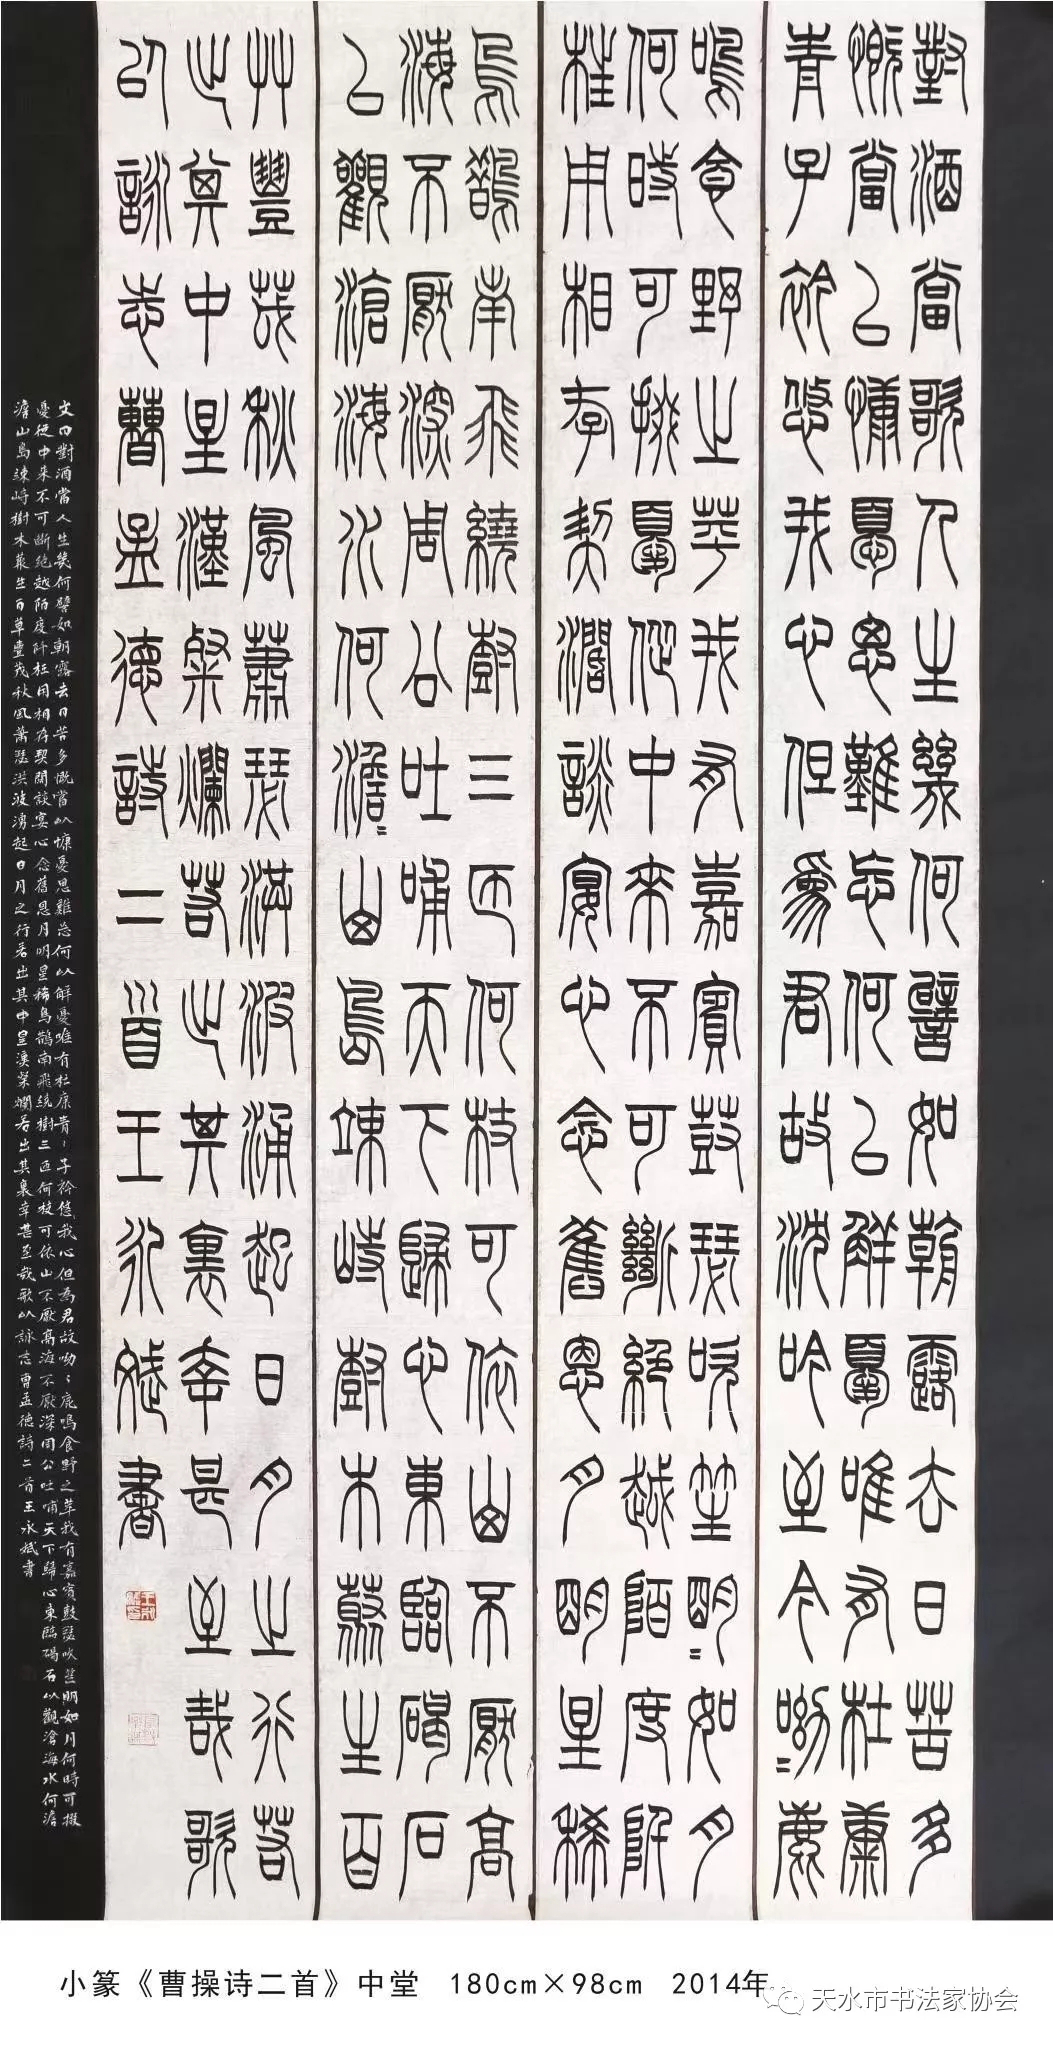 對酒當歌人生幾何譬如朝露去日苦多
慨當以慷憂思難忘何以解憂唯有杜康
青子衿悠我心但為君故沈吟至今呦〻鹿
鳴食野之苹我有嘉賓鼓瑟吹笙明〻如月
何時可掇憂從中來不可斷絕越陌度阡
枉用相存契闊談宴心念舊恩月明星稀
烏鵲南飛繞樹三匝何枝可依山不厭高
海不厭深周公吐哺天下歸心東臨碣石
以觀滄海水何澹〻山島竦峙樹木叢生百
艸豐茂秋風蕭瑟洪波涌起日月之行若
出其中星漢粲爛若出其裏幸甚至哉歌
以詠志曹孟德詩二首王永斌書
文曰對酒當人生幾何譬如朝露去日苦多慨當以慷憂思難忘何以解憂唯有杜康青〻子衿悠〻我心但為君故呦〻鹿鳴食野之苹我有嘉賓鼓瑟吹笙明〻如月何時可掇
憂從中來不可斷絕越陌度阡枉用相存契闊談宴心念舊恩月明星稀烏鵲南飛繞樹三匝何枝可依山不厭高海不厭深周公吐哺天下歸心東臨碣石以觀滄海水何澹
澹山島竦峙樹木叢生百草豐茂秋風蕭瑟洪波湧起日月之行若出其中星漢粲爛若出其裏幸甚至哉歌以詠志曹孟德詩二首王永斌書
小篆《曹操诗二首》中堂 180cm×98cm 2014年
天水市书法家协会